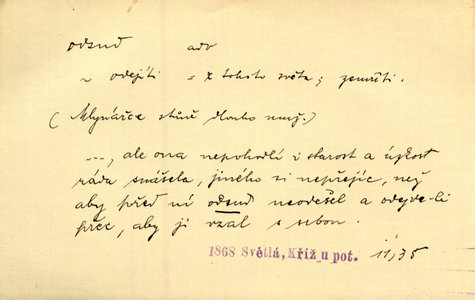 odsud adv
~ odejíti = z tohoto světa; zemříti.
(Mlynářce stůně dlouho muž.)
..., ale ona nepohodlí i starost a úzkost
ráda snášela, jiného si nepřejíc, než
aby před ní odsud neodešel a odejde-li
přec, aby ji vzal s sebou.
1868 Světlá, Kříž u pot. II, 35